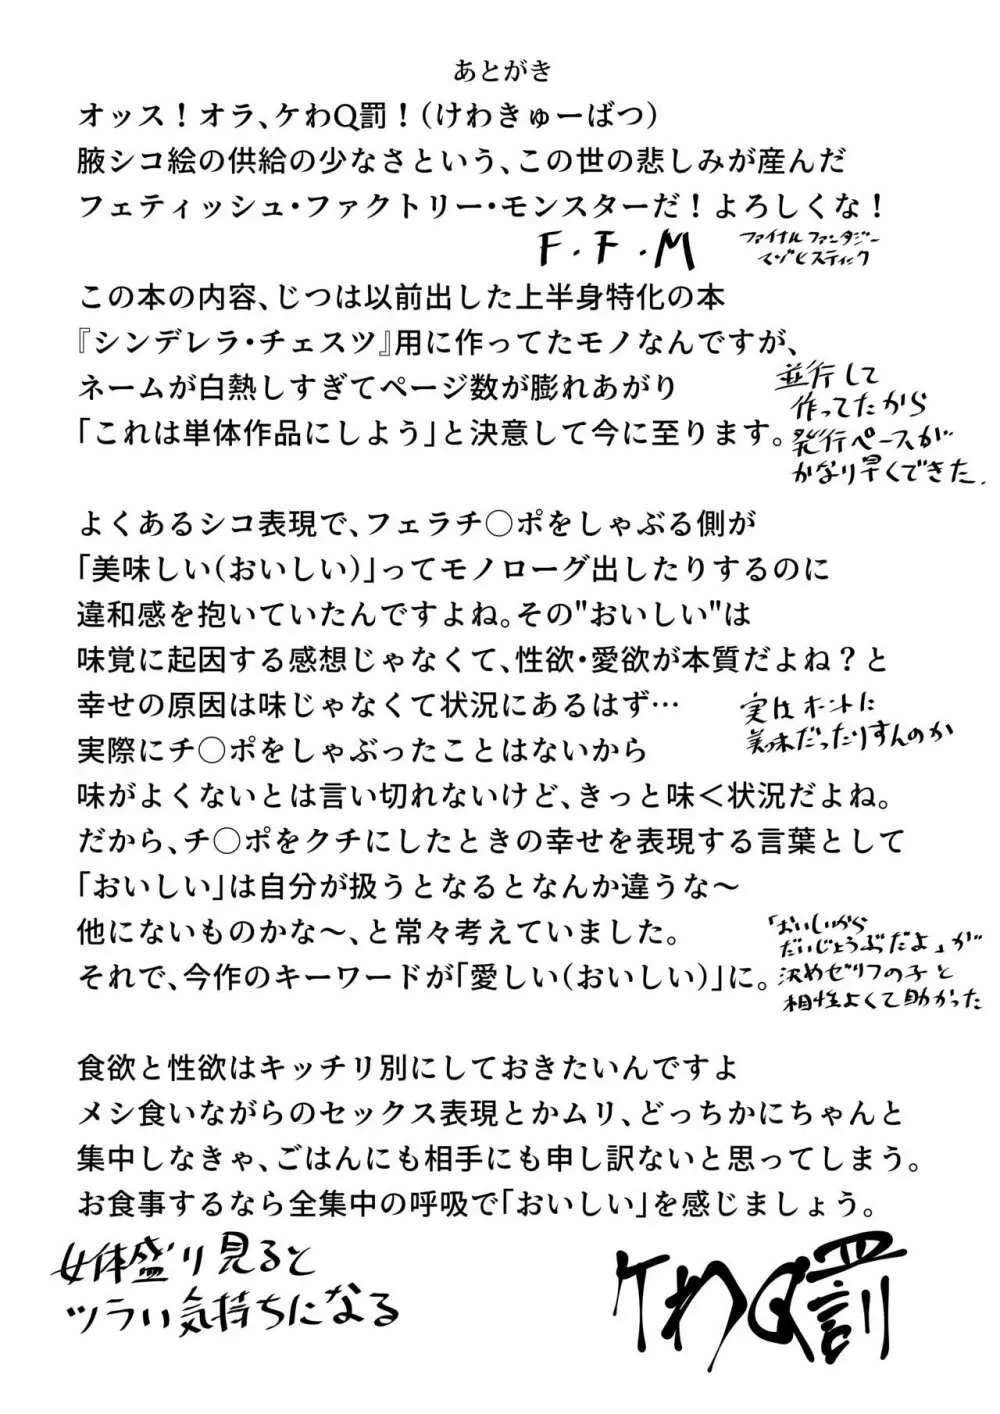 あとがき
オッス！オラ、ケわQ罰！（けわきゅーばつ）
腋シコ絵の供給の少なさという、この世の悲しみが産んだ
フェティッシュ・ファクトリー・モンスターだ！よろしくな！
F.F.M
ファイナルファンタジー
マゾヒスティック
この本の内容、じつは以前出した上半身特化の本
『シンデレラ・チェスツ』用に作ってたモノなんですが、
ネームが白熱しすぎてページ数が膨れあがり
「これは単体作品にしよう」と決意して今に至ります。
並行して
作ってたから
発行ペースが
かなり早くできた.
よくあるシコ表現で、フェラチ〇ポをしゃぶる側が
「美味しい（おいしい）」ってモノローグ出したりするのに
違和感を抱いていたんですよね。その"おいしい"は
味覚に起因する感想じゃなくて、性欲・愛欲が本質だよね？と
幸せの原因は味じゃなくて状況にあるはず…
実はホントに
美味だったりすんのか
実際にチ〇ポをしゃぶったことはないから
味がよくないとは言い切れないけど、きっと味＜状況だよね。
だから、チ〇ポをクチにしたときの幸せを表現する言葉として
「おいしい」は自分が扱うとなるとなんか違うな～
他にないものかな～、と常々考えていました。
それで、今作のキーワードが「愛しい（おいしい）」に。
「おいしいから
だいじょうぶだよ」が
決めゼリフの子と
相性よくて助かった
食欲と性欲はキッチリ別にしておきたいんですよ
メシ食いながらのセックス表現とかムリ、どっちかにちゃんと
集中しなきゃ、ごはんにも相手にも申し訳ないと思ってしまう。
お食事するなら全集中の呼吸で「おいしい」を感じましょう。
女体盛り見ると
ツラい気持ちになる
ケわQ罰